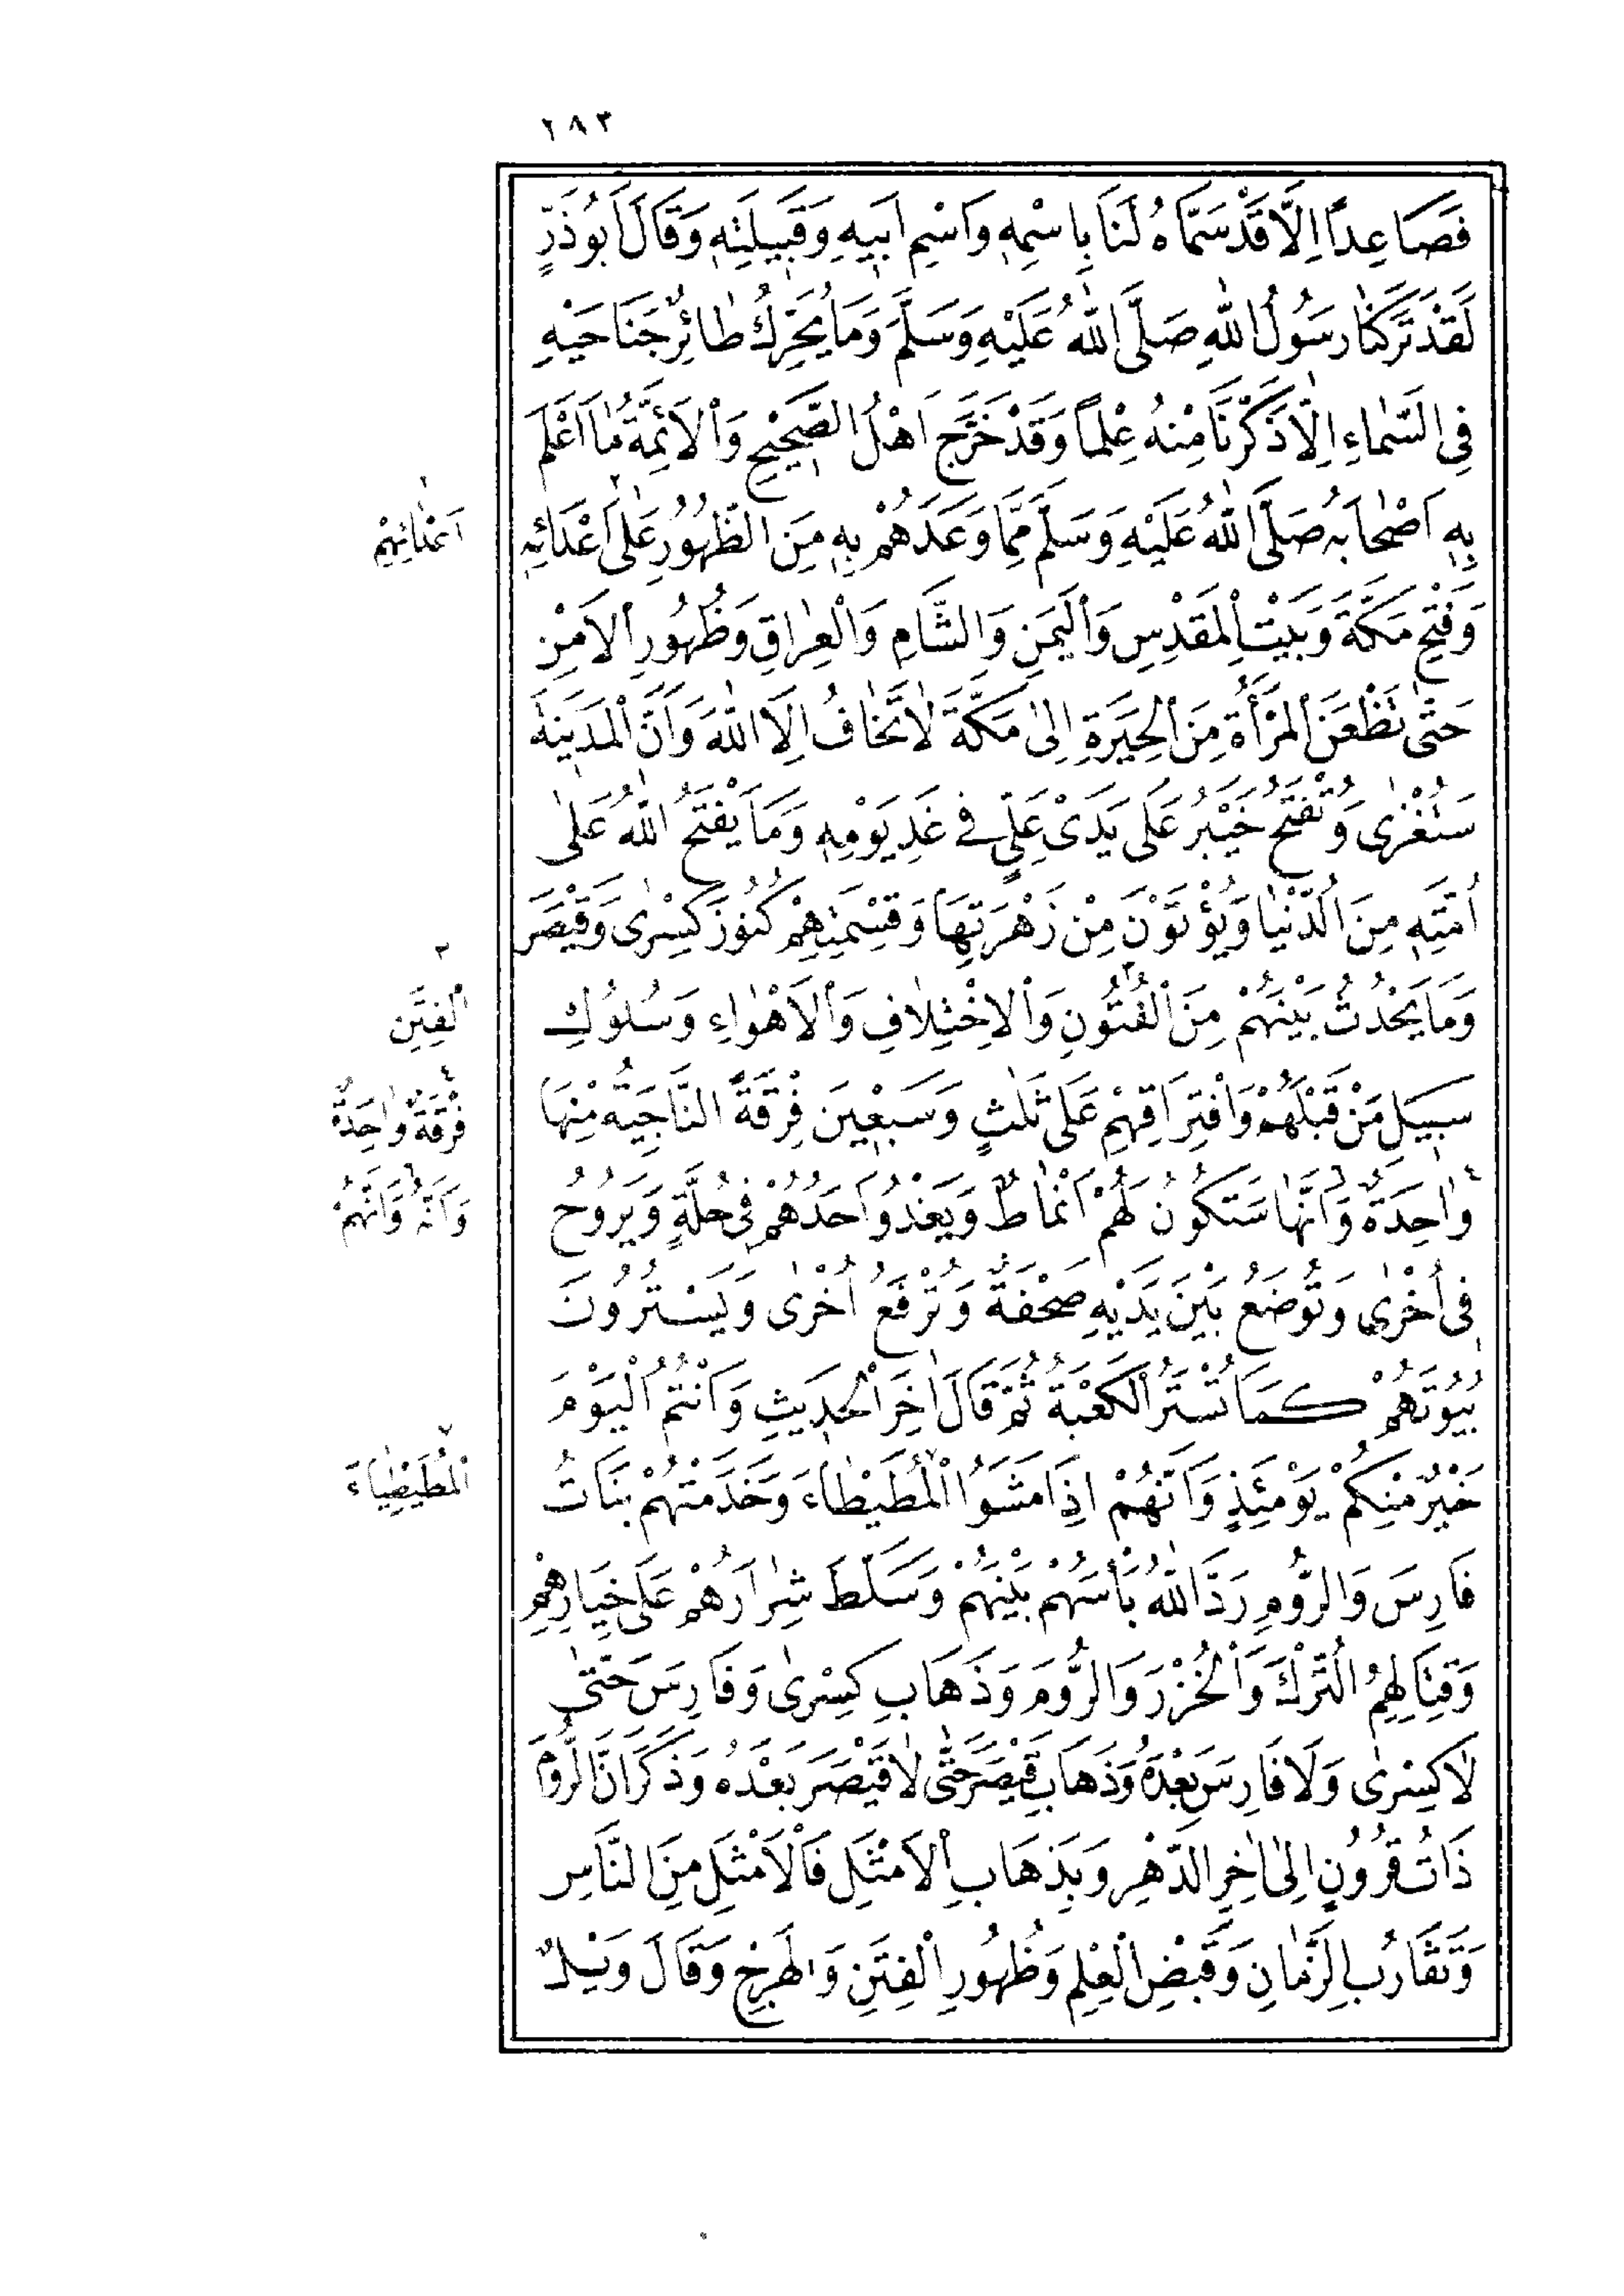 ٢٨٣
فَصَاعِدًا اِلَّا قَدْ سَمَّاهُ لَنَا بِاسْمِهِ وَاسْمِ اَبِيهِ وَقَبِيلَتِهِ وَقَالَ اَبُوذَرٍّ
لَقَدْ تَرَكَنَا رَسُولُ اللّٰهِ صَلَّى اللّٰهُ عَلَيْهِ وَسَلَّمَ وَمَا يُحَرِّكُ طَائِرٌ جَنَاحَيْهِ
فِى السَّمَاءِ اِلَّا ذَكَّرَنَا مِنْهُ عِلْمًا وَقَدْ خَرَّجَ اَهْلُ الصَّحِيحِ وَالْاَئِمَّةُ مَا اَعْلَمَ
بِهِ اَصْحَابَهُ صَلَّى اللّٰهُ عَلَيْهِ وَسَلَّمَ مِمَّا وَعَدَهُمْ بِهِ مِنَ الظُّهُورِ عَلٰى اَعْدَائِهِ
اَعْدَائِهِمْ
وَفَتْحِ مَكَّةَ وَبَيْتِ الْمَقْدِسِ وَالْيَمَنِ وَالشَّامِ وَالْعِرَاقِ وَظُهُورِ الْاَمْنِ
حَتّٰى تَظْعَنَ الْمَرْأَةُ مِنَ الْحِيرَةِ اِلٰى مَكَّةَ لَا تَخَافُ اِلَّا اللّٰهَ وَاَنَّ الْمَدِينَةَ
سَتُغْزٰى وَتُفْتَحُ خَيْبَرُ عَلَى يَدَىْ عَلِىٍّ فِى غَدِ يَوْمِهِ وَمَا يَفْتَحُ اللّٰهُ عَلٰى
اُمَّتِهِ مِنَ الدُّنْيَا وَيُؤْتَوْنَ مِنْ زَهْرَتِهَا وَقِسْمَتِهِمْ كُنُوزَ كِسْرٰى وَقَيْصَرَ
وَمَا يَحْدُثُ بَيْنَهُمْ مِنَ الْفُتُونِ وَالْاِخْتِلَافِ وَالْاَهْوَاءِ وَسُلُوكِ
٣ الْفِتَنِ
سَبِيلِ مَنْ قَبْلَهُمْ وَافْتِرَاقِهِمْ عَلَى ثَلٰثٍ وَسَبْعِينَ فِرْقَةً النَّاجِيَةُ مِنْهَا
٤ فِرْقَةٌ وَاحِدَةٌ
وَاحِدَةٌ وَاَنَّهَا سَتَكُونُ لَهُمْ اَنْمَاطٌ وَيَغْدُو اَحَدُهُمْ فِى حُلَّةٍ وَيَرُوحُ
وَاَنَّهُ وَاَنَّهُمْ
فِى اُخْرٰى وَتُوضَعُ بَيْنَ يَدَيْهِ صَحْفَةٌ وَتُرْفَعُ اُخْرٰى وَيَسْتُرُونَ
بُيُوتَهُمْ كَمَا تُسْتَرُ الْكَعْبَةُ ثُمَّ قَالَ اٰخِرَ الْحَدِيثِ وَاَنْتُمُ الْيَوْمَ
خَيْرٌ مِنْكُمْ يَوْمَئِذٍ وَاَنَّهُمْ اِذَا مَشَوُا الْمُطَيْطَاءَ وَخَدَمَتْهُمْ بَنَاتُ
٧ الْمُطَيْطِيَاءَ
فَارِسَ وَالرُّومِ رَدَّ اللّٰهُ بَأْسَهُمْ بَيْنَهُمْ وَسَلَّطَ شِرَارَهُمْ عَلَى خِيَارِهِمْ
وَقِتَالِهِمُ التُّرْكَ وَالْخُزْرَ وَالرُّومَ وَذَهَابِ كِسْرٰى وَفَارِسَ حَتّٰى
لَا كِسْرٰى وَلَا فَارِسَ بَعْدَهُ وَذَهَابِ قَيْصَرَ حَتّٰى لَا قَيْصَرَ بَعْدَهُ وَذَكَرَ اَنَّ الرُّومَ
ذَاتُ قُرُونٍ اِلٰى اٰخِرِ الدَّهْرِ وَبِذَهَابِ الْاَمْثَلِ فَالْاَمْثَلِ مِنَ النَّاسِ
وَتَقَارُبِ الزَّمَانِ وَقَبْضِ الْعِلْمِ وَظُهُورِ الْفِتَنِ وَالْهَرْجِ وَقَالَ وَيْلٌ